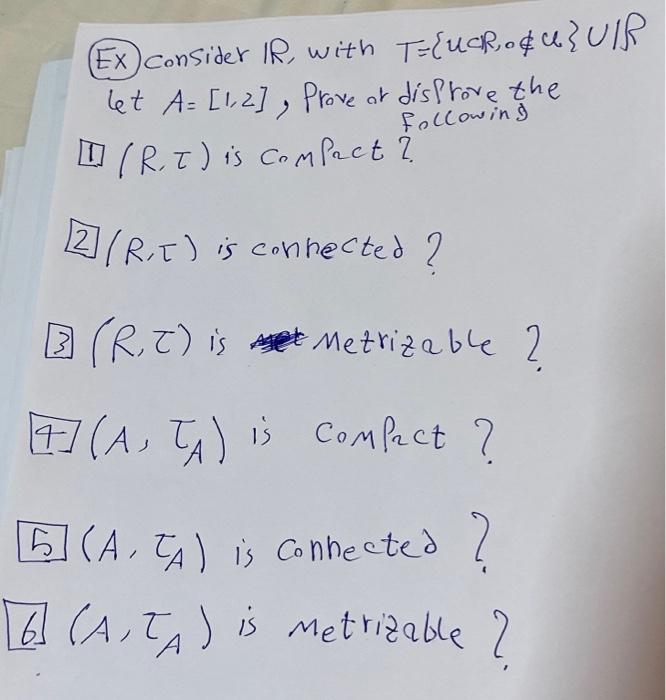 Ex Consider ℝ, with T={U⊂R, 0∉U}∪ℝ
Let A=[1,2], Prove or disProve the
Following
1 (R,τ) is comPact ?
2 (R,τ) is connected ?
3 (R,τ) is Metrizable ?
4 (A, τ_A) is comPact ?
5 (A, τ_A) is connected ?
6 (A, τ_A) is Metrizable ?